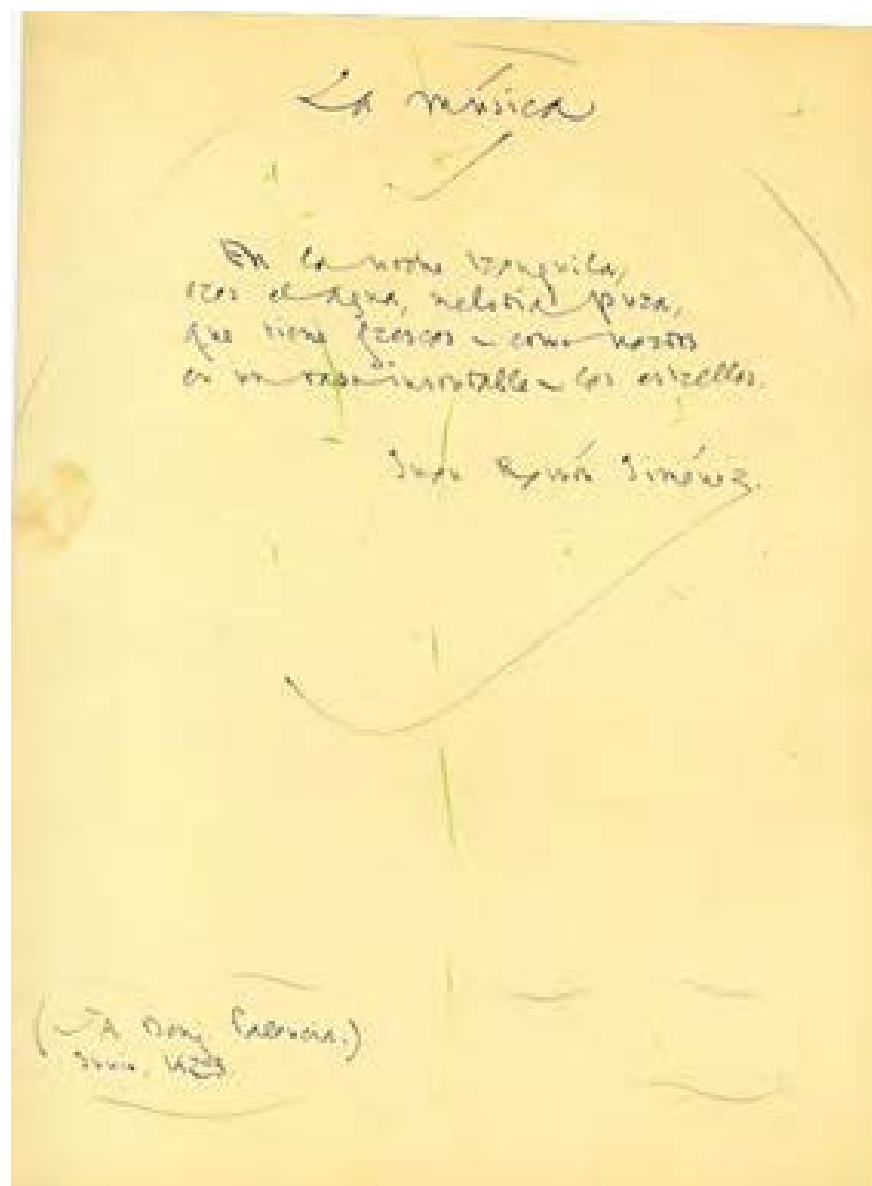 La música
En la noche tranquila,
eres el agua, melodía pura,
que tiene frescas – como nardos
en un vaso insondable – las estrellas.
Juan Ramón Jiménez.
(A
Junio, 1923.